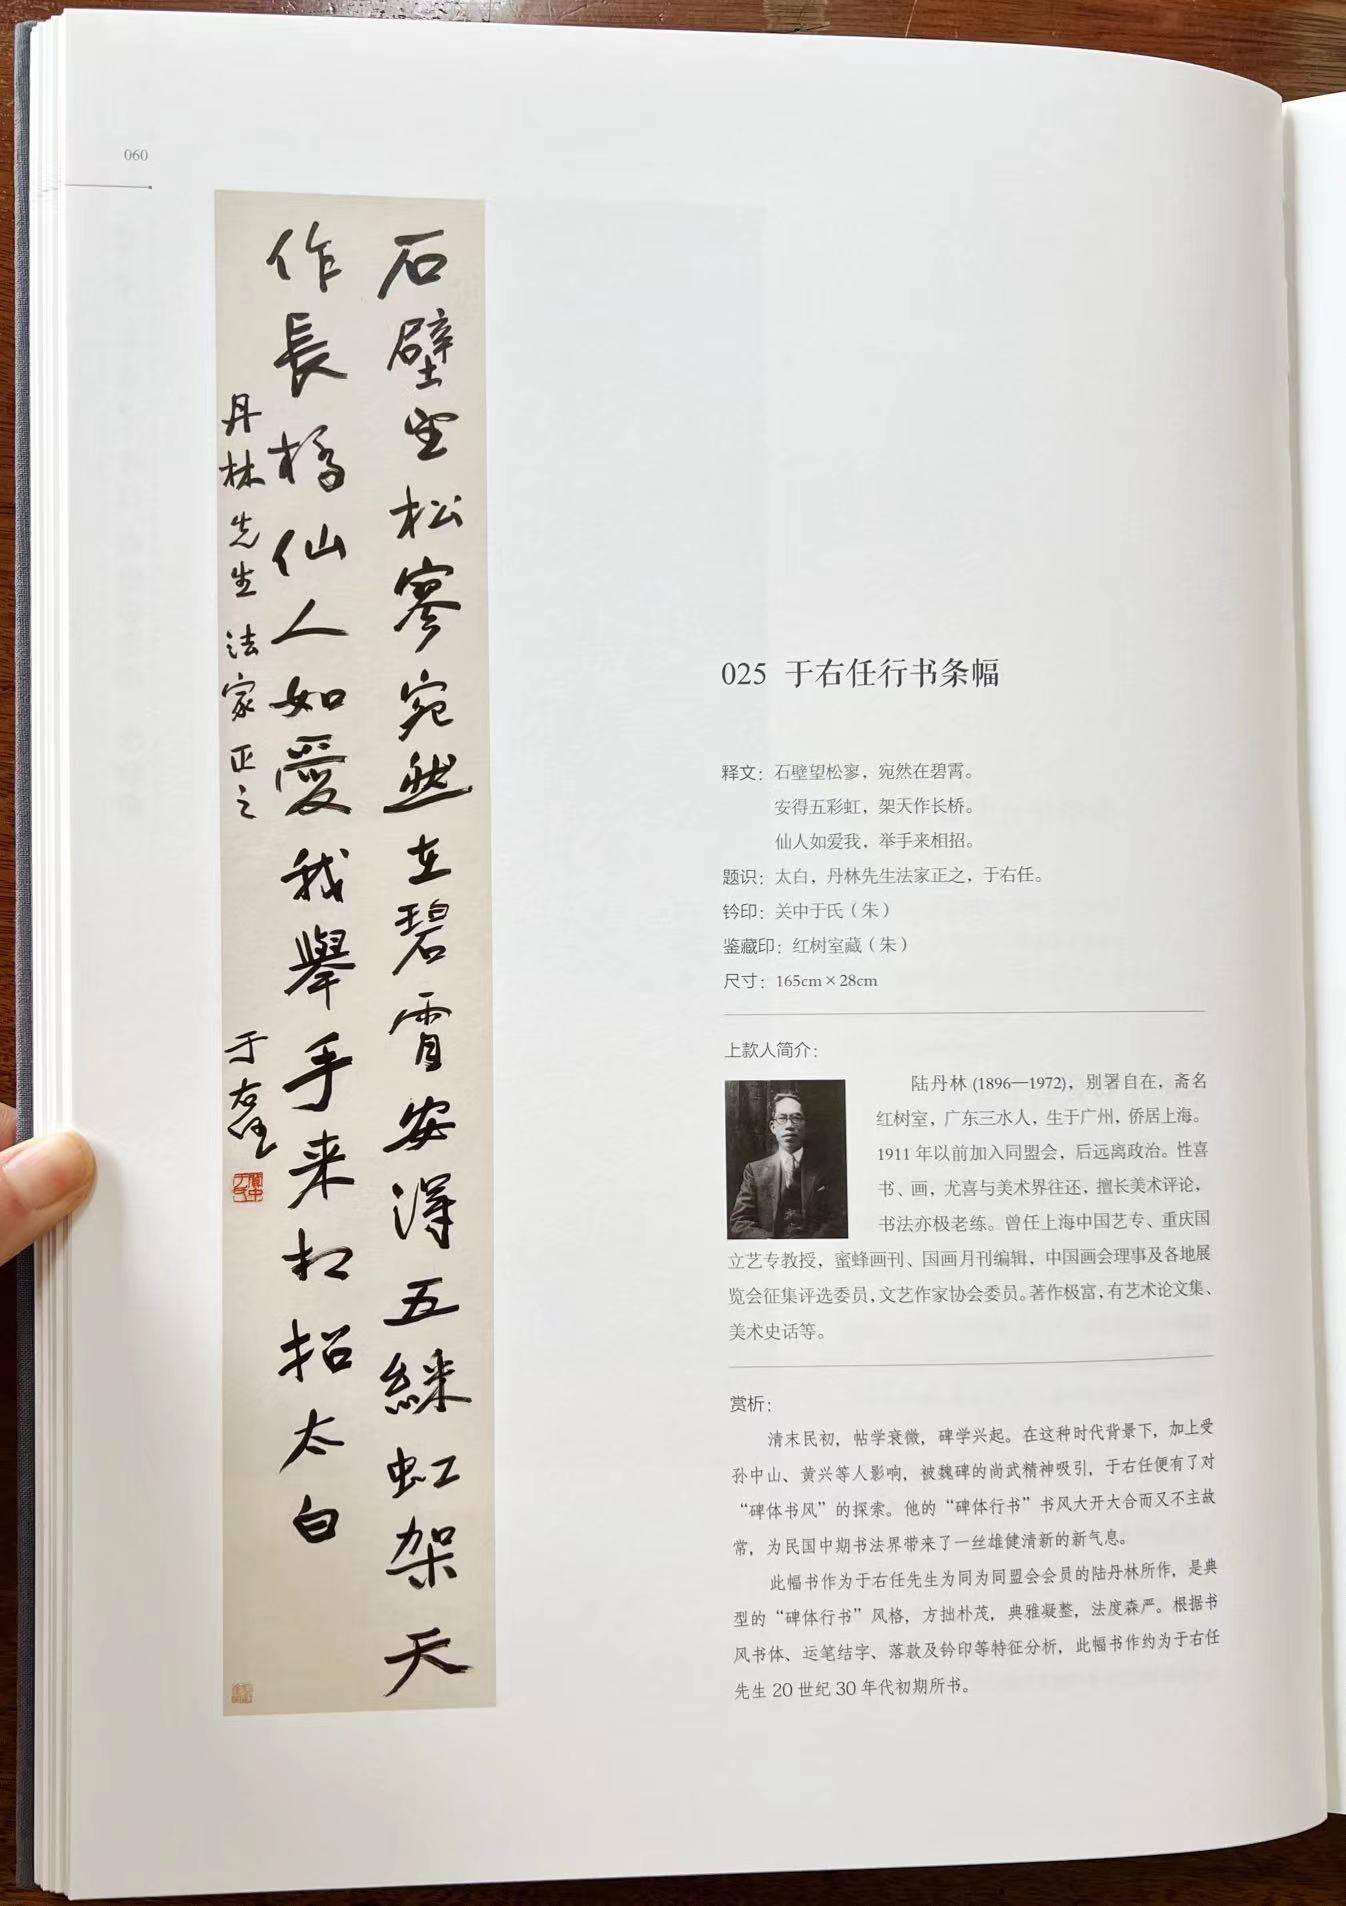 060
石壁望松寥宛然在碧霄安得五綵虹架天
作長橋仙人如愛我舉手来相招太白
丹林先生法家正之
于右任
关中于氏
025 于右任行书条幅
释文：石壁望松寥，宛然在碧霄。
安得五彩虹，架天作长桥。
仙人如爱我，举手来相招。
题识：太白，丹林先生法家正之，于右任。
钤印：关中于氏（朱）
鉴藏印：红树室藏（朱）
尺寸：165cm×28cm
上款人简介：
陆丹林 (1896—1972)，别署自在，斋名
红树室，广东三水人，生于广州，侨居上海。
1911 年以前加入同盟会，后远离政治。性喜
书、画，尤喜与美术界往还，擅长美术评论，
书法亦极老练。曾任上海中国艺专、重庆国
立艺专教授，蜜蜂画刊、国画月刊编辑，中国画会理事及各地展
览会征集评选委员，文艺作家协会委员。著作极富，有艺术论文集、
美术史话等。
赏析：
清末民初，帖学衰微，碑学兴起。在这种时代背景下，加上受
孙中山、黄兴等人影响，被魏碑的尚武精神吸引，于右任便有了对
“碑体书风”的探索。他的“碑体行书”书风大开大合而又不主故
常，为民国中期书法界带来了一丝雄健清新的新气息。
此幅书作为于右任先生为同为同盟会会员的陆丹林所作，是典
型的“碑体行书”风格，方拙朴茂，典雅凝整，法度森严。根据书
风书体、运笔结字、落款及钤印等特征分析，此幅书作约为于右任
先生 20 世纪 30 年代初期所书。